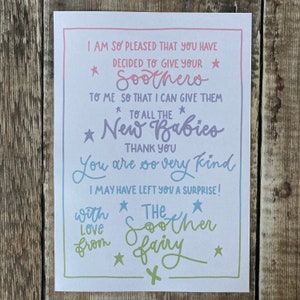 I AM SO PLEASED THAT YOU HAVE
DECIDED TO GIVE YOUR
Soothers
TO ME SO THAT I CAN GIVE THEM
TO ALL THE
New Babies
THANK YOU
You are so very kind
I MAY HAVE LEFT YOU A SURPRISE!
with
love
from
THE
Soother
fairy
X